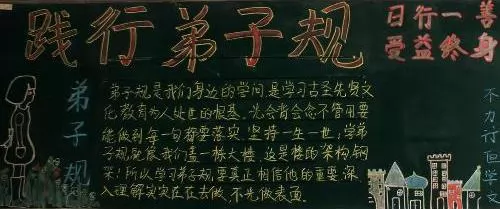 践行弟子规
日行一善
受益终身
弟子规
弟子规是我们身边的学问,是学习古圣先贤文
化,教育为人处世的根基。先会背会念不管用要
能做到,每一句都要落实,坚持一生一世,学弟
子规就像我们盖一栋大楼,这是楼的架构钢
架!所以学习弟子规,要真正相信他的重要,深
入理解,实实在在去做,不光做表面。
不力行但学文